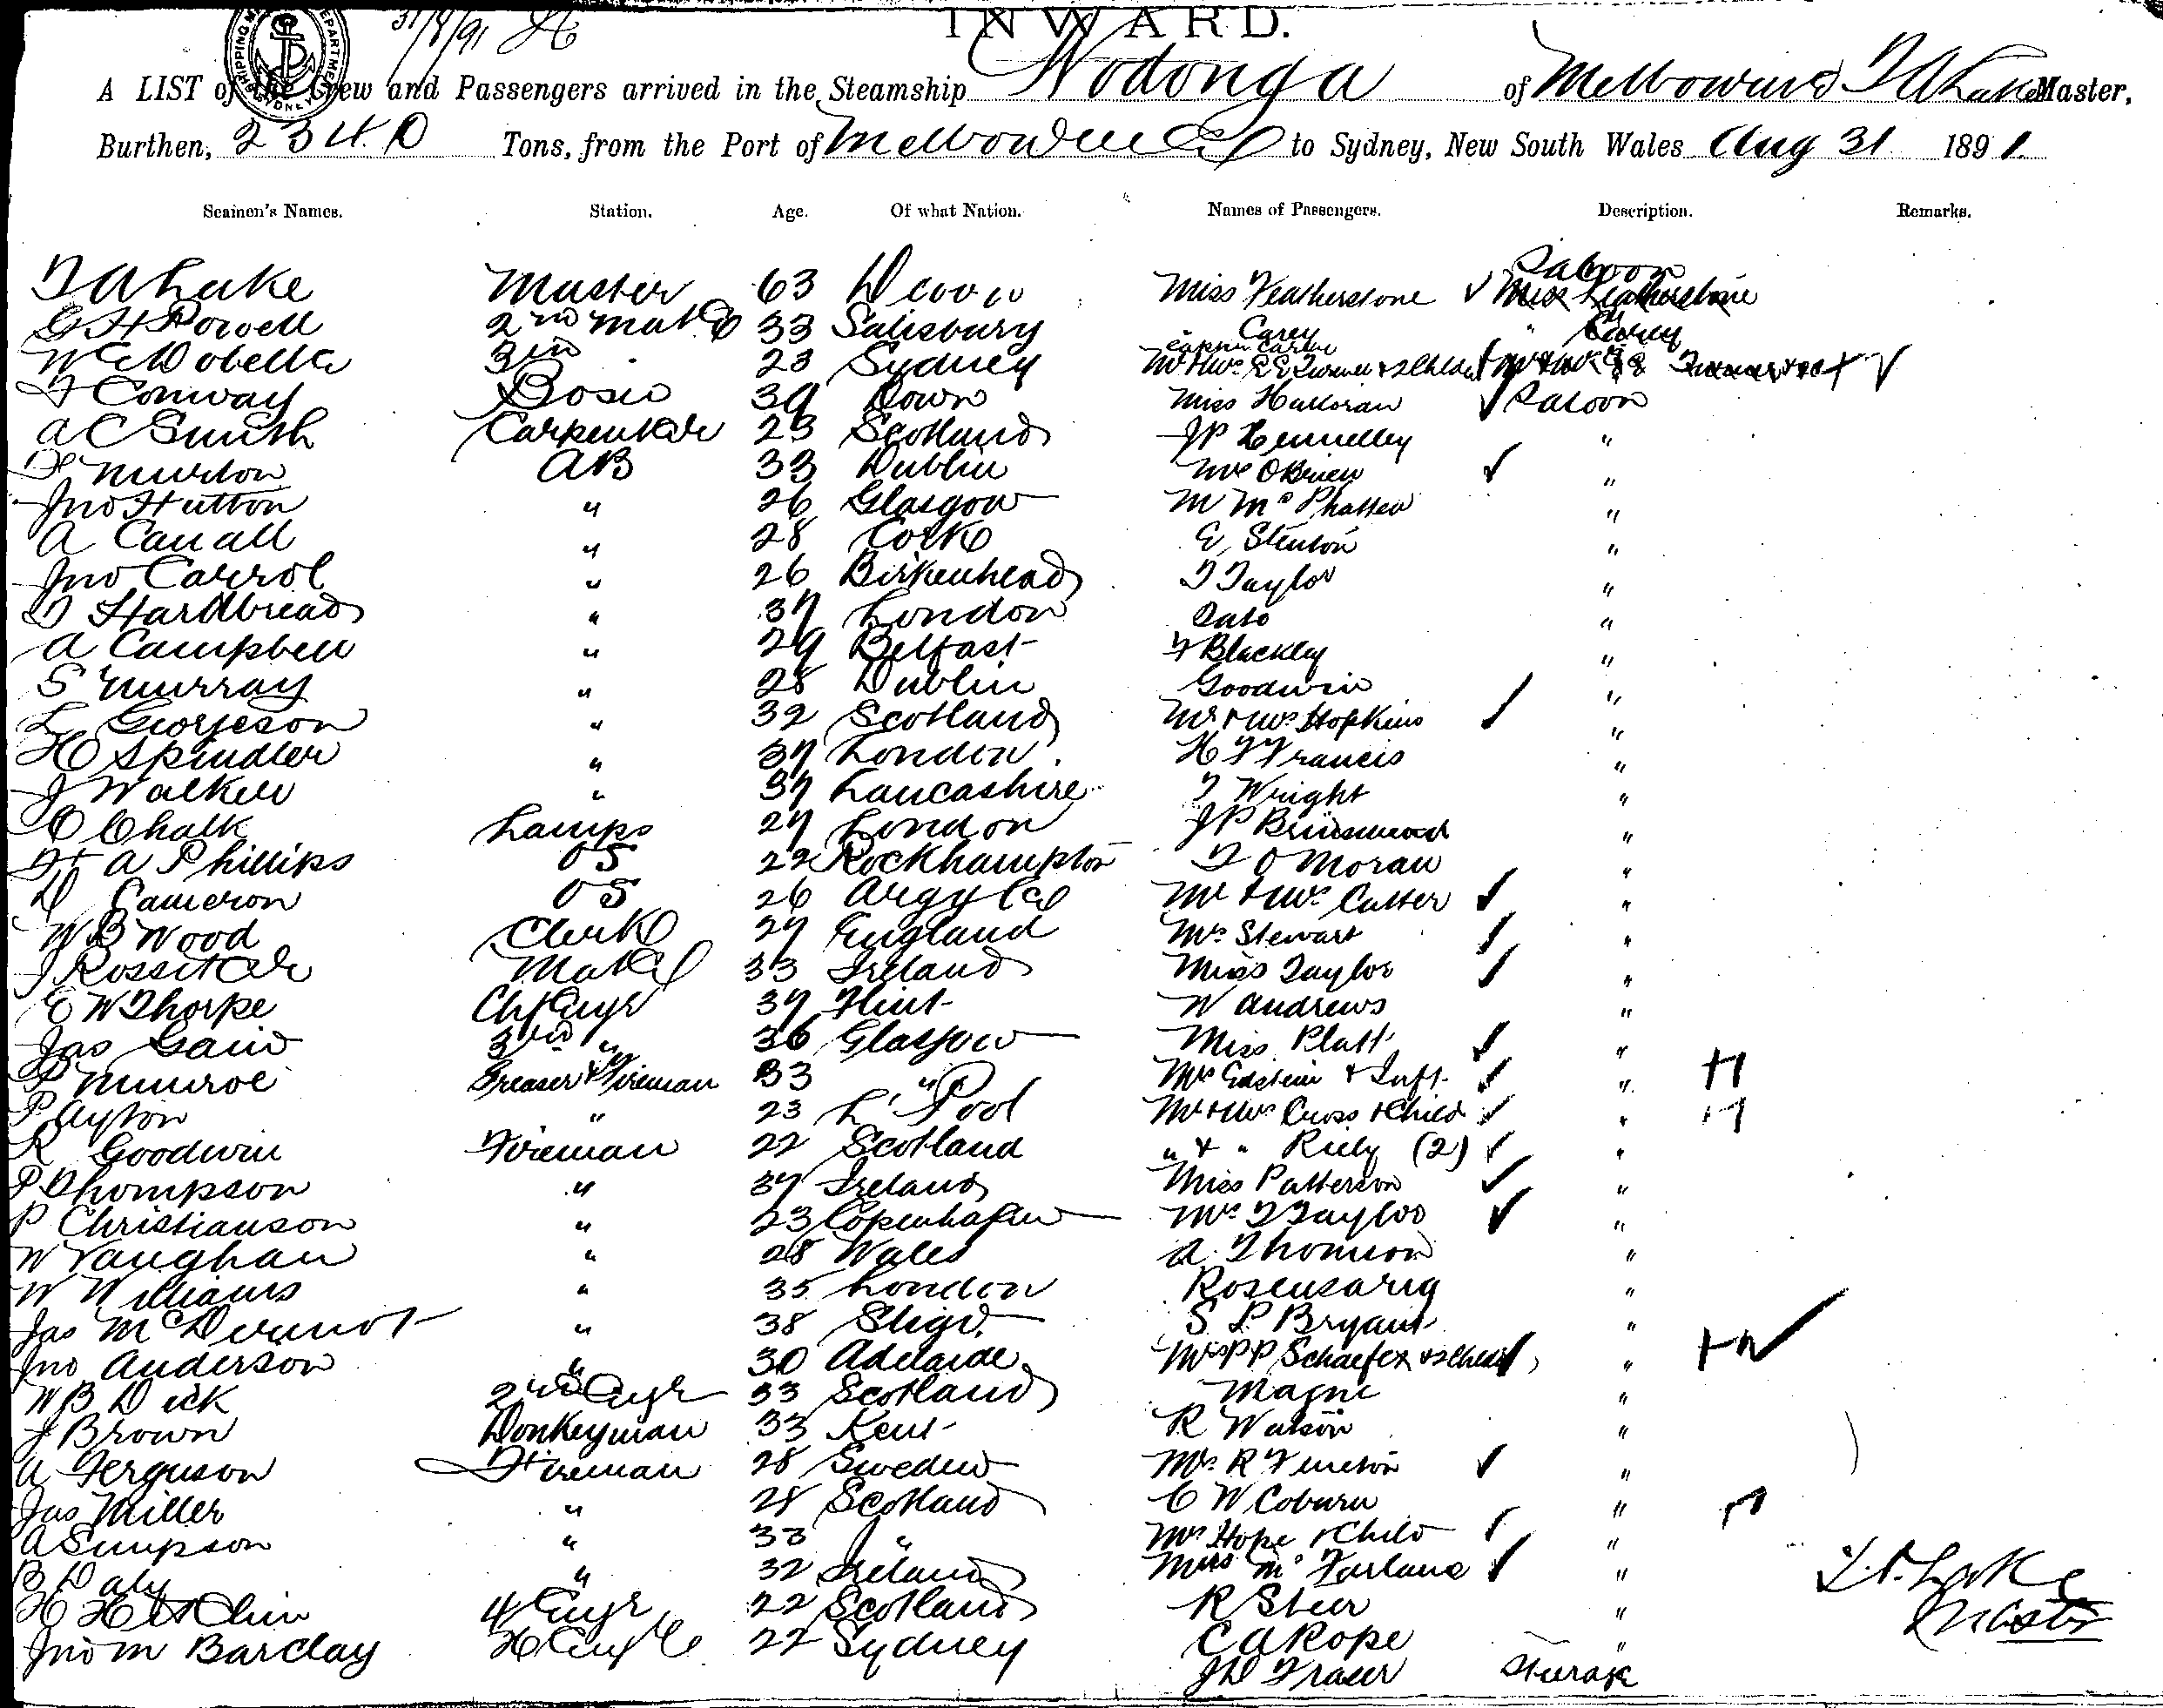 31/8/91
INWARD.
SHIPPING MASTER'S DEPARTMENT SYDNEY
A LIST of the Crew and Passengers arrived in the Steamship Wodonga of Melbourne T A Lake Master,
Burthen, 2340 Tons, from the Port of Melbourne to Sydney, New South Wales Aug 31 1891.
Seamen's Names. Station. Age. Of what Nation. Names of Passengers. Description. Remarks.
Saloon
T A Lake Master 63 Devon Miss Featherstone Miss Featherstone
G H Powell 2nd Mate 33 Salisbury Carey " Carey
W C Dobell 3rd 23 Sydney Mr & Mrs E E Turner & 2 Child Mr & Mrs E E Turner
F Conway Bosn 39 Down Miss Halloran Saloon
A C Smith Carpenter 23 Scotland J P Kennelley "
Murton AB 33 Dublin Mrs O'Brien "
Jno Hutton " 26 Glasgow M McPhatten "
A Canall " 28 Cork E. Stenton "
Jno Carrol " 26 Birkenhead T Taylor "
T Hardbread " 37 London Sato "
A Campbell " 29 Belfast F Blackley "
S Murray " 28 Dublin Goodwin "
L Georgeson " 32 Scotland Mr & Mrs Hopkins "
H Spindler " 37 London H F Francis "
J Walker " 37 Lancashire T Wright "
O Chalk Lamps 27 London J P "
A Phillips OS 22 Rockhampton T O Moran "
D Cameron OS 26 Argyle Mr & Mrs Cutter "
W B Wood Clerk 27 England Mrs Stewart "
J Rossiter Mate 33 Ireland Miss Taylor "
E W Thorpe Ch Engr 37 Flint W Andrews "
Jas Gaird 3rd " 36 Glasgow Miss Platt "
P Munroe Greaser & Fireman 33 " Mrs Edstein & Inft "
P Ayton " 23 L'Pool Mr & Mrs Cross & Child "
R Goodwin Fireman 22 Scotland " & " Riely (2) "
P Thompson " 37 Ireland Miss Patterson "
P Christianson " 23 Copenhagen Mrs T Taylor "
W Vaughan " 28 Wales A. Thomson "
W Williams " 35 London Rosensarig "
Jas McDermot " 38 Sligo. S P Bryant "
Jno Anderson " 30 Adelaide P P Schaefer & 2 Child "
W B Dick 2nd Engr 33 Scotland Magne "
J Brown Donkeyman 33 Kent R Watson "
A Ferguson Fireman 28 Sweden Mrs R Feneton "
Jas Miller " 28 Scotland C W Coburn "
A Simpson " 33 " Mrs Hope & Child "
B Daly " 32 Ireland Miss McFarlane "
H Hitchin 4 Engr 22 Scotland R Steer "
Jno M Barclay 22 Sydney C A Rope "
J D Fraser Steerage
T. A. Lake
Master